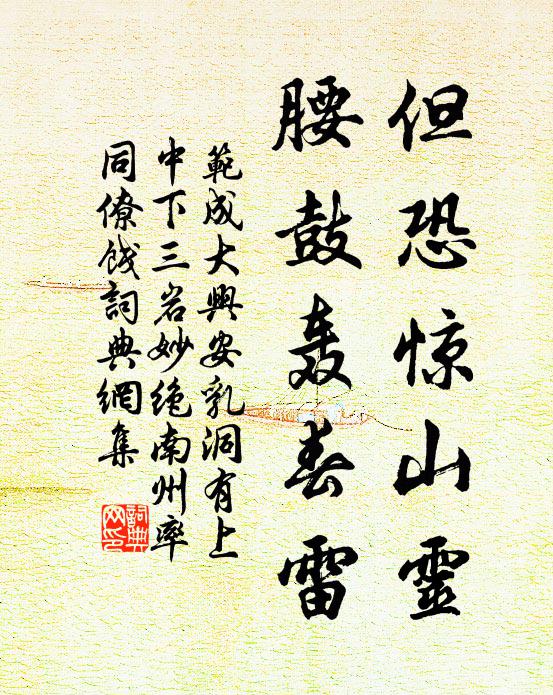 但恐惊山靈
腰鼓轰春雷
範成大興安乳洞有上
中下三岩妙绝南州率
同僚餞詞典網集
詞典
网印